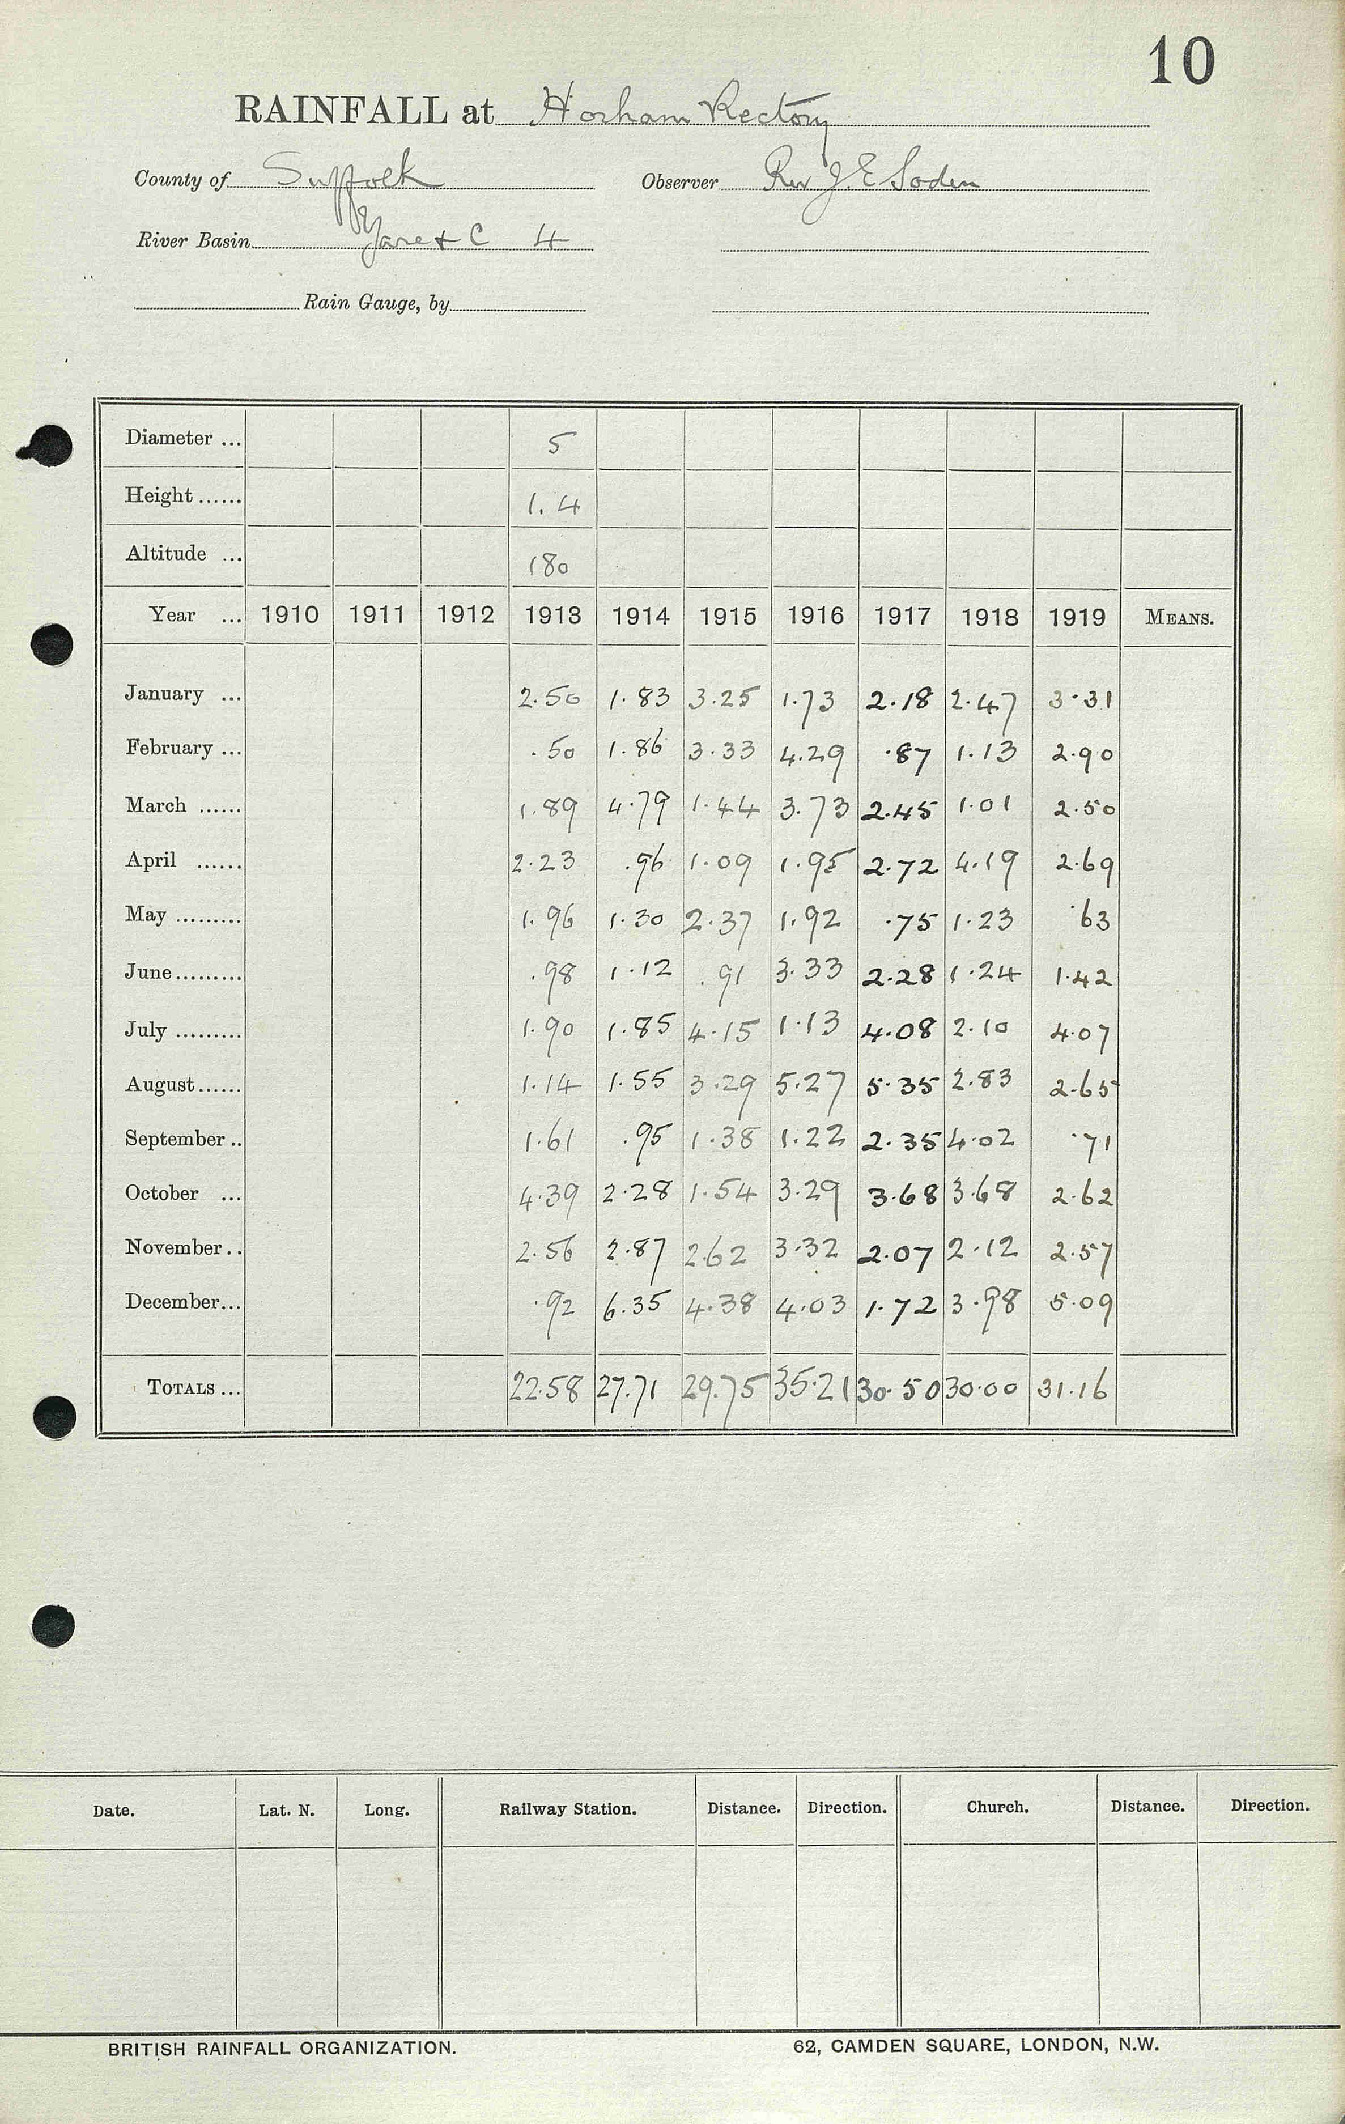 10
RAINFALL at Horham Rectory
County of Suffolk Observer Rev J. E Soden
River Basin Yare & C 4
Rain Gauge, by
Diameter ... 5
Height ...... 1.4
Altitude ... 180
Year ... 1910 1911 1912 1913 1914 1915 1916 1917 1918 1919 MEANS.
January ... 2.50 1.83 3.25 1.73 2.18 2.47 3.31
February ... .50 1.86 3.33 4.29 .87 1.13 2.90
March ...... 1.89 4.79 1.44 3.73 2.45 1.01 2.50
April ...... 2.23 .96 1.09 1.95 2.72 4.19 2.69
May ......... 1.96 1.30 2.37 1.92 .75 1.23 .63
June ......... .98 1.12 .91 3.33 2.28 1.24 1.42
July ......... 1.90 1.85 4.15 1.13 4.08 2.10 4.07
August ...... 1.14 1.55 3.29 5.27 5.35 2.83 2.65
September .. 1.61 .95 1.38 1.22 2.35 4.02 .71
October ... 4.39 2.28 1.54 3.29 3.68 3.68 2.62
November .. 2.56 2.87 2.62 3.32 2.07 2.12 2.57
December ... .92 6.35 4.38 4.03 1.72 3.98 5.09
TOTALS ... 22.58 27.71 29.75 35.21 30.50 30.00 31.16
Date. Lat. N. Long. Railway Station. Distance. Direction. Church. Distance. Direction.
BRITISH RAINFALL ORGANIZATION. 62, CAMDEN SQUARE, LONDON, N.W.